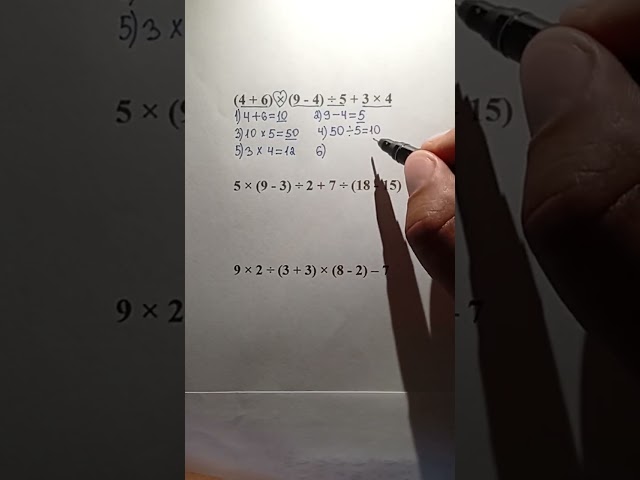 5) 3 ×
(4 + 6) × (9 - 4) ÷ 5 + 3 × 4
1) 4+6=10 2) 9-4=5
3) 10 × 5=50 4) 50÷5=10
5) 3 × 4=12 6)
5 × (9
15)
5 × (9 - 3) ÷ 2 + 7 ÷ (18 - 15)
9 × 2 ÷ (3 + 3) × (8 - 2) – 7
9 × 2
7